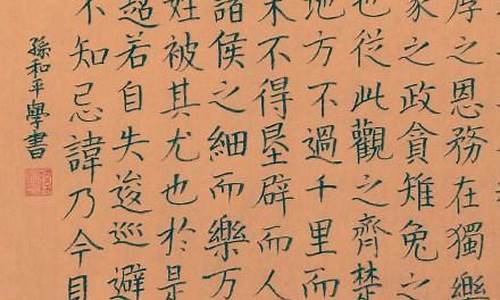 厚之恩務在獨樂
家之政貪雉兔之
也從此觀之齊楚
地方不過千里而
木不得垦辟而人
諸侯之細而樂万
姓被其尤也於是
超若自失逡巡避
不知忌諱乃今
孫和平學書